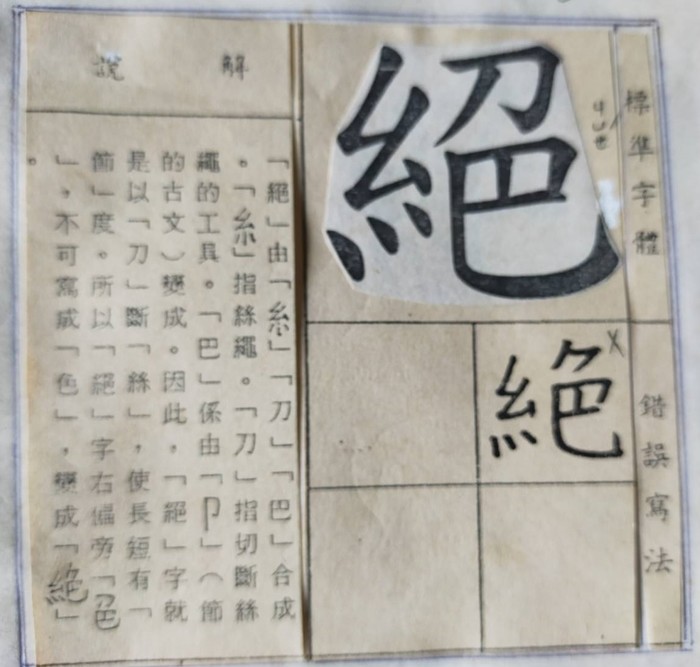 標準字體
ㄐㄩㄝˊ
絕
錯誤寫法
X
絶
解說
「絕」由「糸」「刀」「巴」合成
。「糸」指絲繩。「刀」指切斷絲
繩的工具。「巴」係由「卩」(節
的古文)變成。因此,「絕」字就
是以「刀」斷「絲」,使長短有「
節」度。所以「絕」字右偏旁「⿱刀巴
」,不可寫成「色」,變成「絶」
。